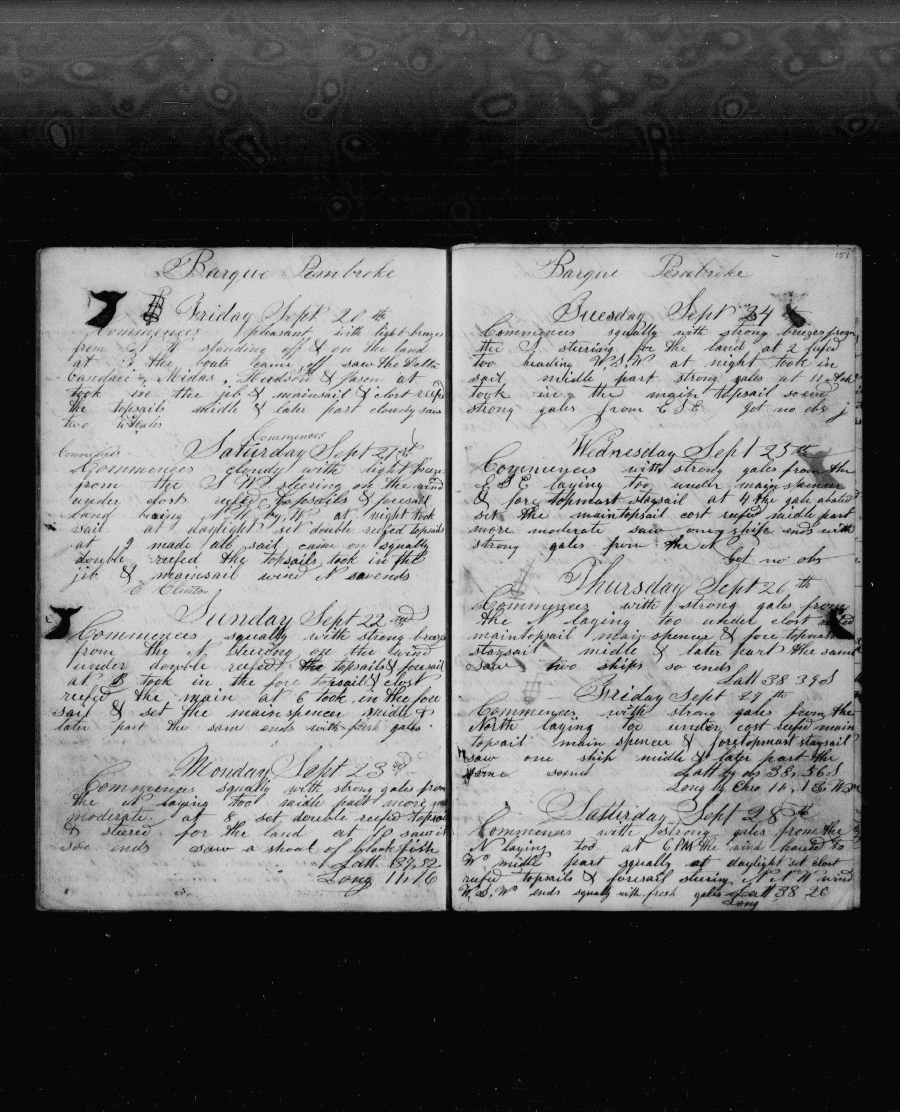 Barque Pembroke
Friday Sept 20th
Commences pleasant with light breeze
from standing off & on the land
at 3 the boats came off saw the
Candace Midas Hudson & Jason at
took in the jib & mainsail & clost reefed
the topsails midle & later part cloudy saw
two
Commences
Commences Saturday Sept 21st
Commences cloudy with light breeze
from the S W steering on the wind
under clost reefed topsails & foresail
land by W at night took
sail at daylight set double reefed topsails
at 9 made all sail came on squally
double reefed the topsails took in the
jib & mainsail wind N so ends
Clinton
Sunday Sept 22nd
Commences squally with strong breeze
from the N steering on the wind
under double reefed the topsails & foresail
at 3 took in the fore topsail & clost
reefed the main at 6 took in the fore
sail & set the main spencer midle &
later part the same ends with fresh gales
Monday Sept 23rd
Commences squally with strong gales from
the N laying too midle part more
moderate at 8 set double reefed topsails
& steered for the land at 10 saw it
soe ends saw a shoal of black fish
Latt 37,52
Long 11,16
151
Barque Pembroke
Tuesday Sept 24
Commences squally with strong breezes from
the S steering for the land at 2
too heading W.S.W at night took in
sail midle part strong gales at 11
took in the main topsail so ends
strong gales from E S E Got no obs
Wednesday Sept 25th
Commences with strong gales from the
E S E laying too under main spencer
& fore topmast staysail at 4 the gale abated
set the maintopsail cost reefed midle part
more moderate saw one ship ends with
strong gales from the N
Got no obs
Thursday Sept 26th
Commences with strong gales from
the N laying too under clost
maintopsail main spencer & fore topmast
staysail midle & later part the same
saw two ships so ends
Latt 38 39 S
Friday Sept 27th
Commences with strong gales from the
North laying too under cost reefed main
topsail main spencer & foretopmast staysail
saw one ship midle & later part the
same soend Latt by obs 38,56 S
Long by Chro
Satturday Sept 28th
Commences with strong gales from the
N laying too at 6 PM the wind hauled to
W midle part squally at daylight set clost
reefed topsails & foresail steering N N W wind
W.S.W ends squally with fresh gales Latt 38 26
Long